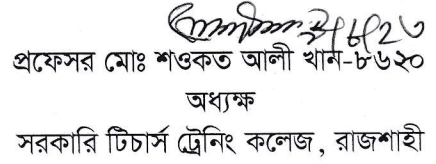 প্রফেসর মোঃ শওকত আলী খান-৮৬২০
অধ্যক্ষ
সরকারি টিচার্স ট্রেনিং কলেজ, রাজশাহী